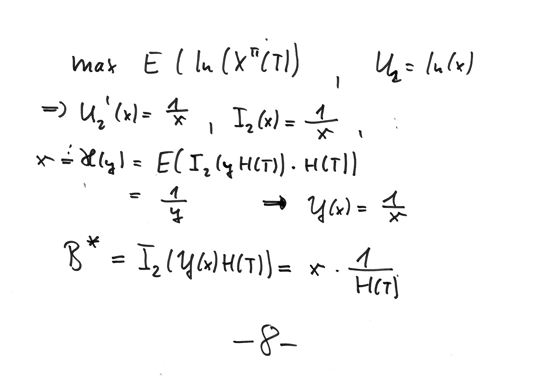 max E ( ln ( X^π(T)) , U₂ = ln(x)
=> U₂'(x) = 1/x , I₂(x) = 1/x ,
x = 𝒳(y) = E( I₂(y H(T)) · H(T))
= 1/y → Y(x) = 1/x
B* = I₂(Y(x)H(T)) = x · 1/H(T)
-8-